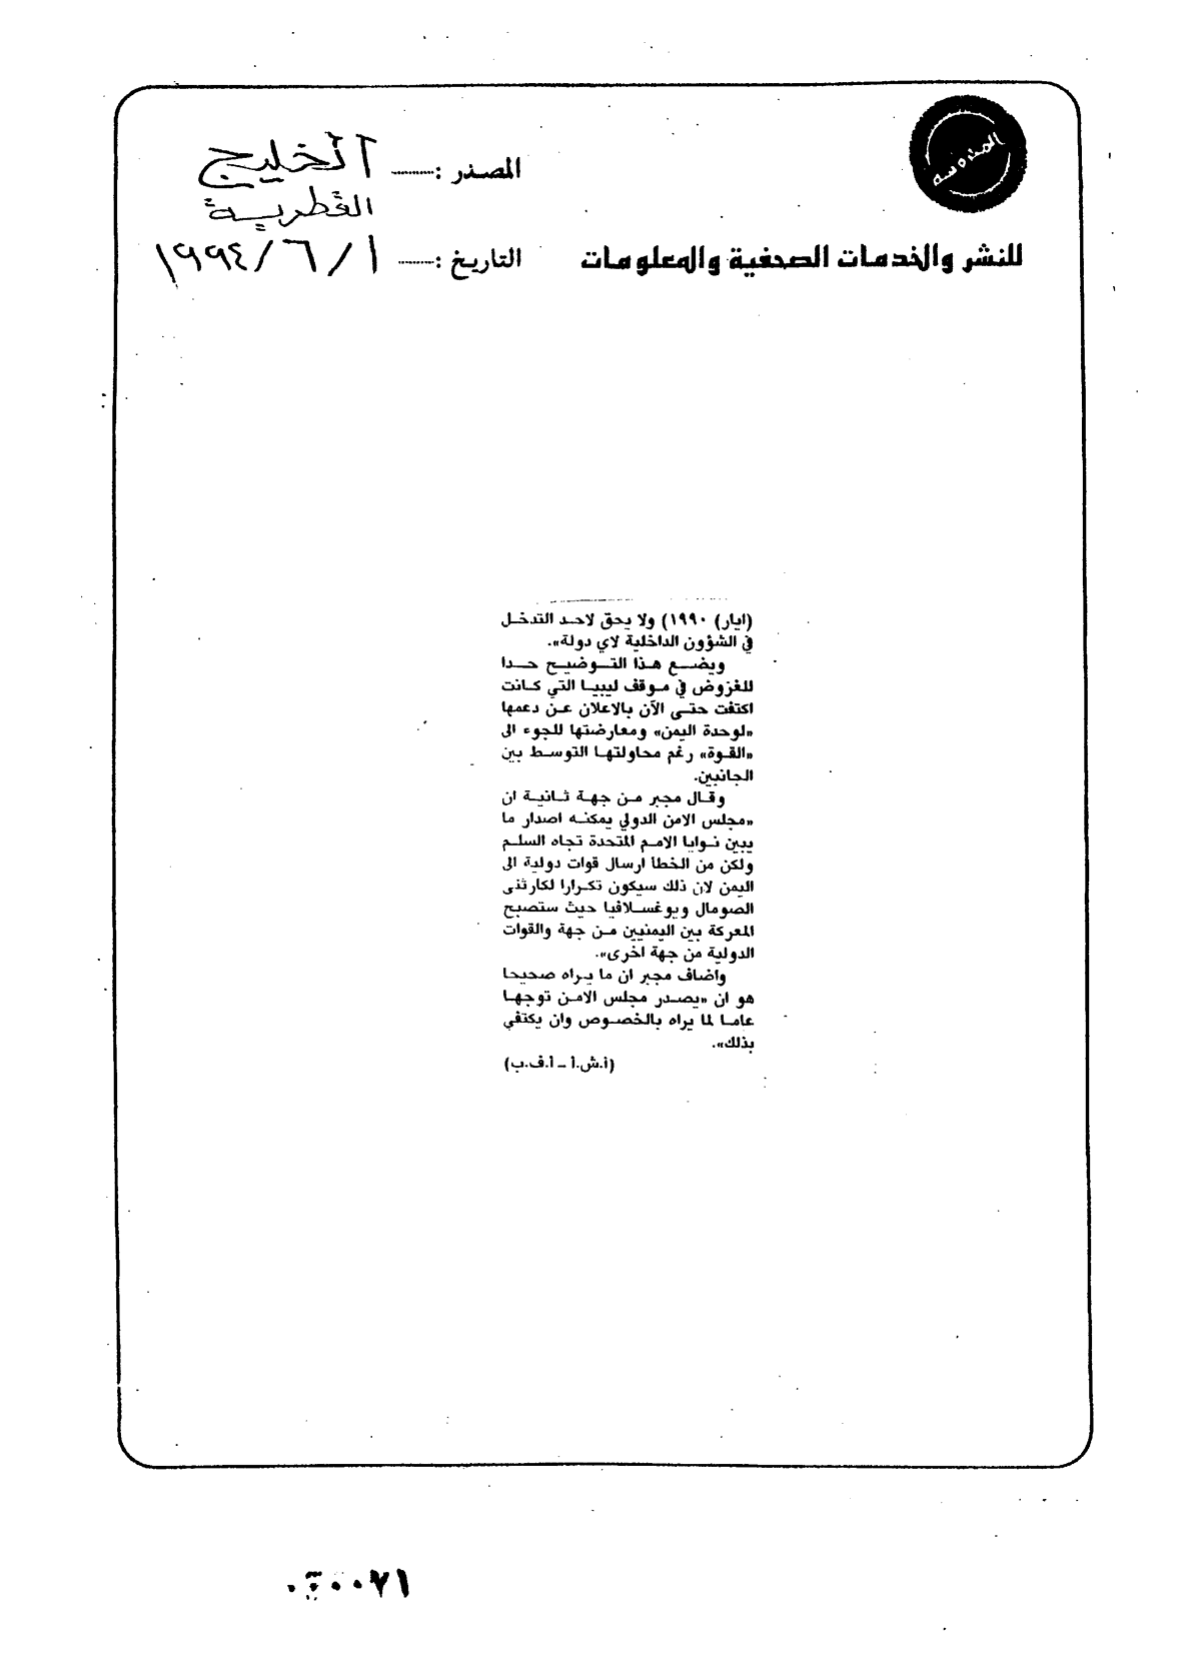 المحروسة
المصدر : الخليج
القطرية
للنشر والخدمات الصحفية والمعلومات
التاريخ : ١ / ٦ / ١٩٩٤
(ايار) ١٩٩٠) ولا يحق لاحد التدخل
في الشؤون الداخلية لاي دولة».
ويضع هذا التوضيح حدا
للغزوض في موقف ليبيا التي كانت
اكتفت حتى الآن بالاعلان عن دعمها
«لوحدة اليمن» ومعارضتها للجوء الى
«القوة» رغم محاولتها التوسط بين
الجانبين.
وقال مجبر من جهة ثانية ان
«مجلس الامن الدولي يمكنه اصدار ما
يبين نوايا الامم المتحدة تجاه السلم
ولكن من الخطأ ارسال قوات دولية الى
اليمن لان ذلك سيكون تكرارا لكارثنى
الصومال ويوغسلافيا حيث ستصبح
المعركة بين اليمنيين من جهة والقوات
الدولية من جهة اخرى».
واضاف مجبر ان ما يراه صحيحا
هو ان «يصدر مجلس الامن توجها
عاما لما يراه بالخصوص وان يكتفي
بذلك».
(أ.ش.أ - أ.ف.ب)